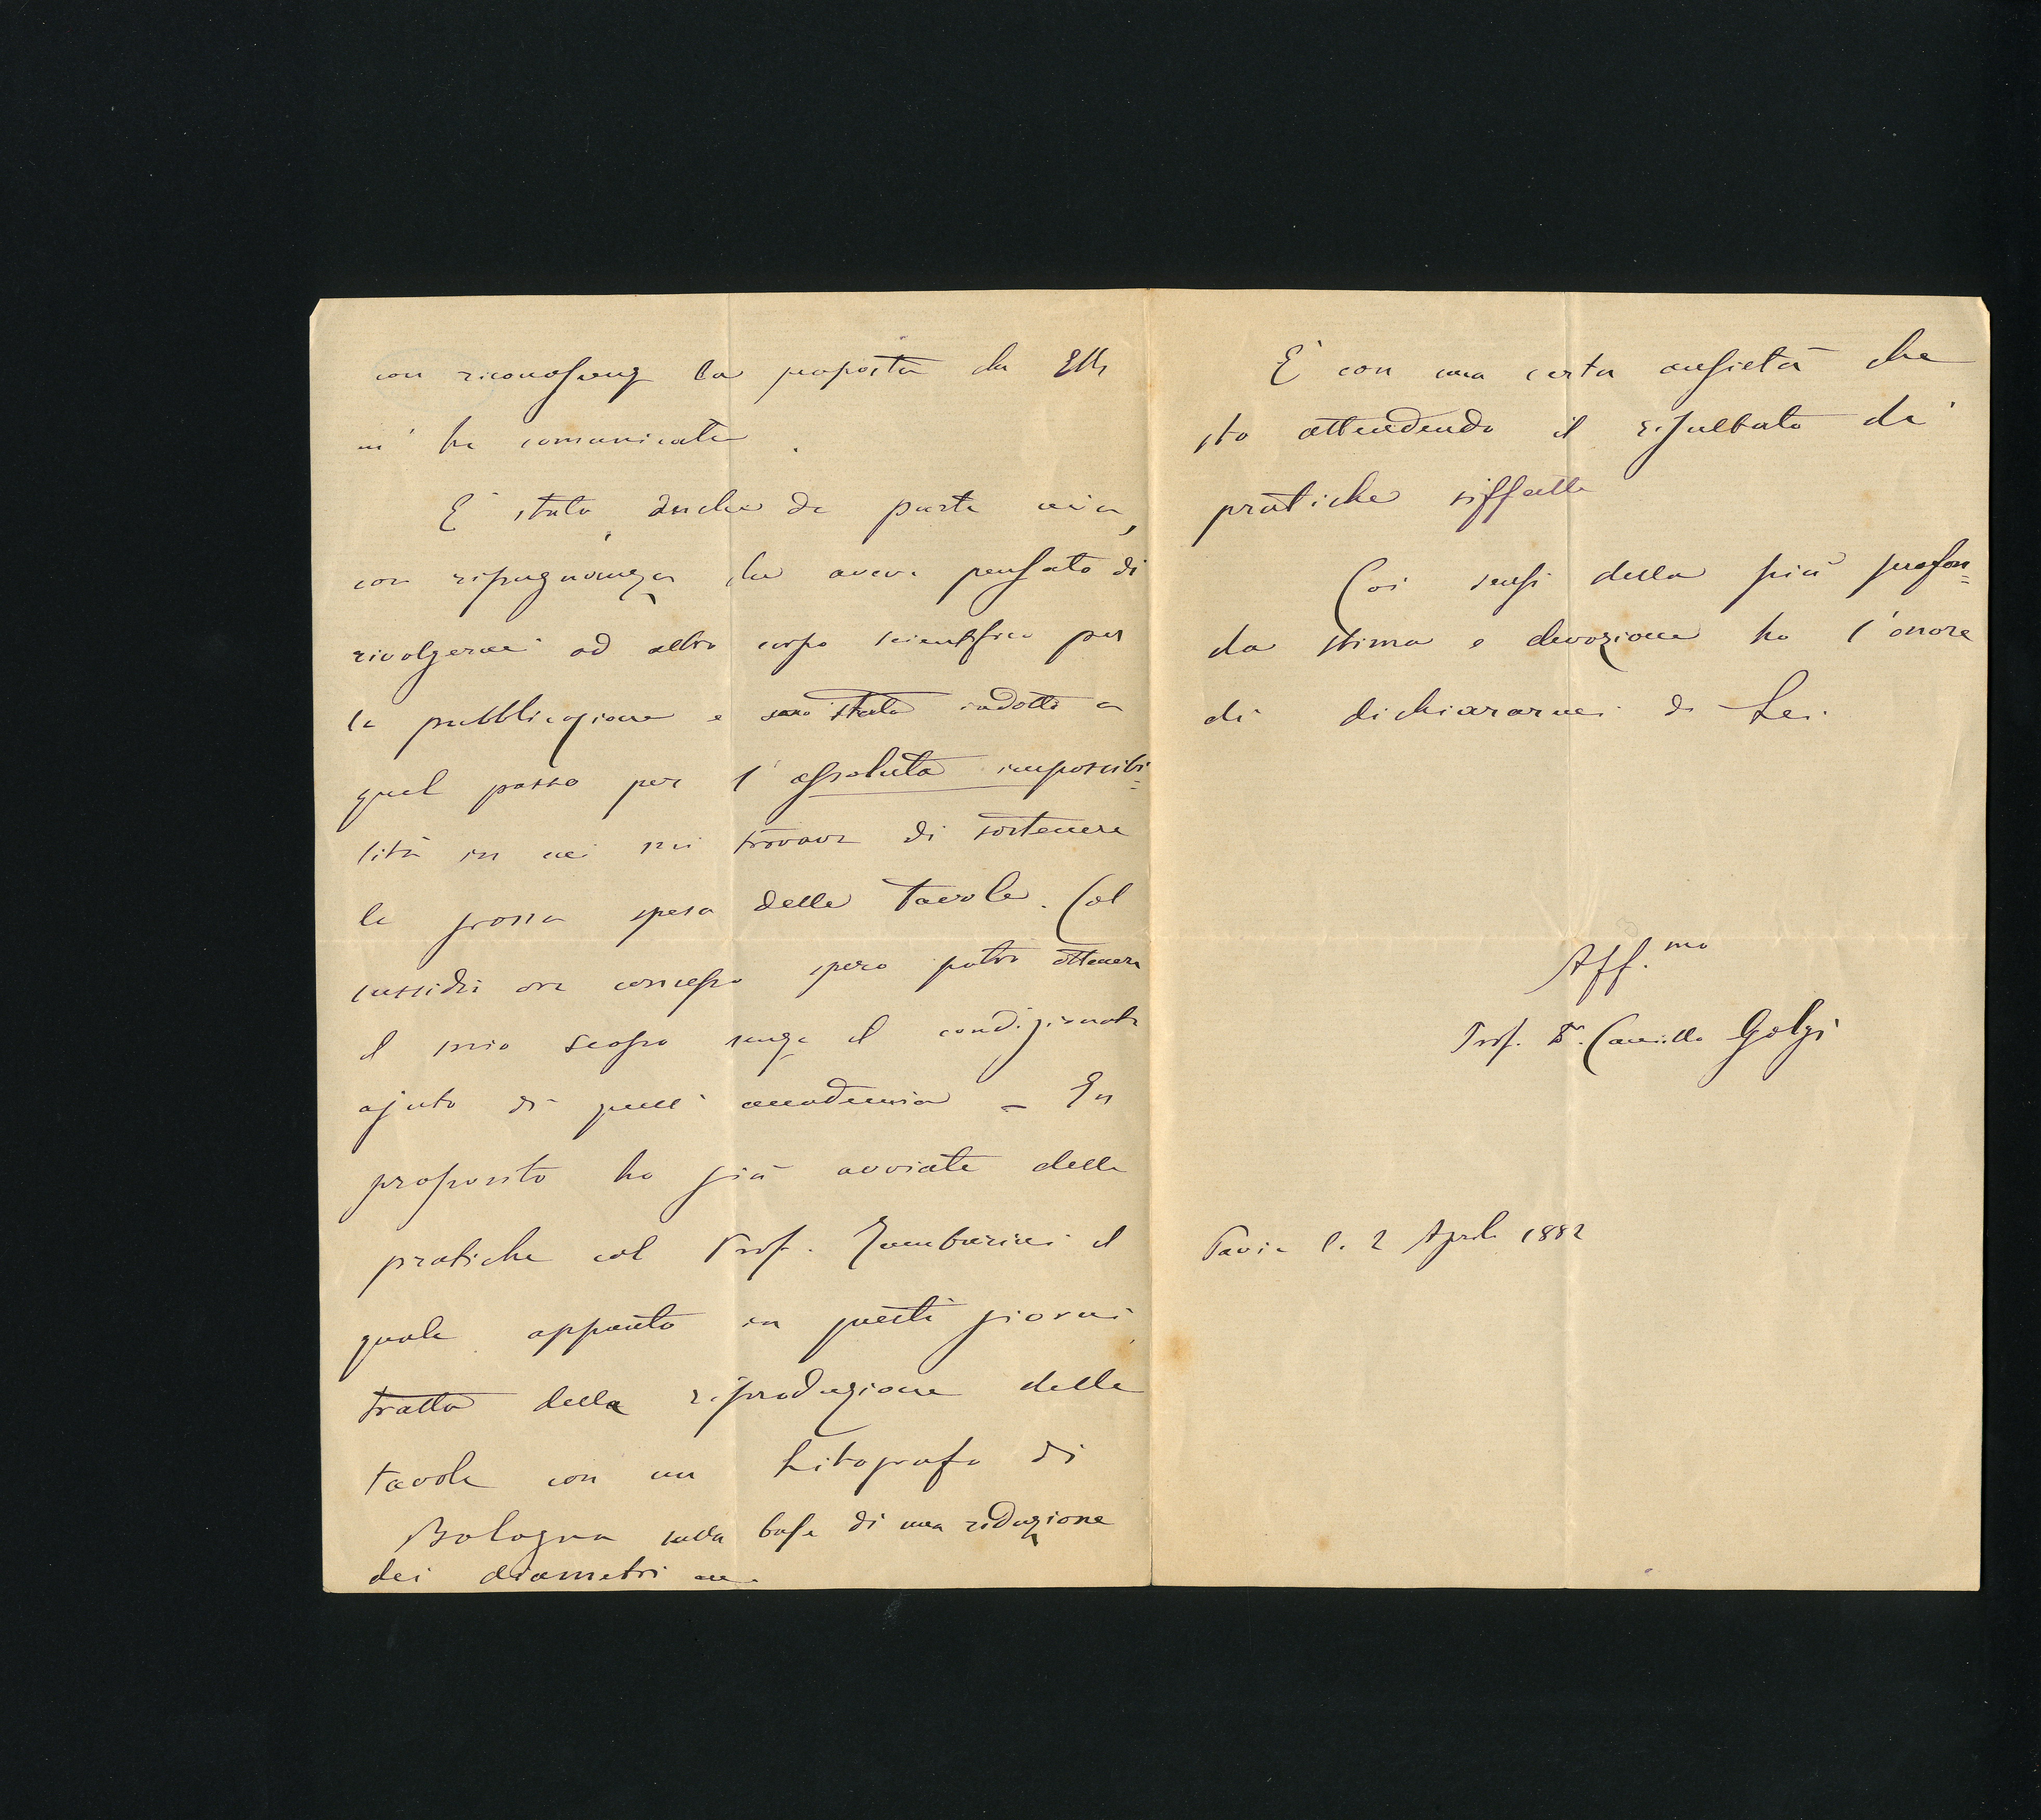 con riconoscenza la proposta che Ella
m' ha comunicata.
E' stato, anche da parte mia,
con ripugnanza che aveva pensato di
rivolgermi ad altro corpo scientifico per
la pubblicazione e sono stato indotto a
quel passo per l' assoluta impossibi=
lità in cui mi trovava di sostenere
la grossa spesa delle tavole. Col
sussidio ora concesso spero potrò ottenere
il mio scopo senza il condizionato
ajuto di quell' accademia – In
proposito ho già avviate delle
pratiche col Prof. Tamburini il
quale appunto in questi giorni
tratta della riproduzione delle
tavole con un Litografo di
Bologna sulla base di una riduzione
dei diametri
E' con una certa ansietà che
sto attendendo il risultato di
pratiche siffatte
Coi sensi della più profon=
da stima e devozione ho l'onore
di dichiararmi di Lei.
Aff.mo
Prof. Dr. Camillo Golgi
Pavia li 2 Aprile 1882